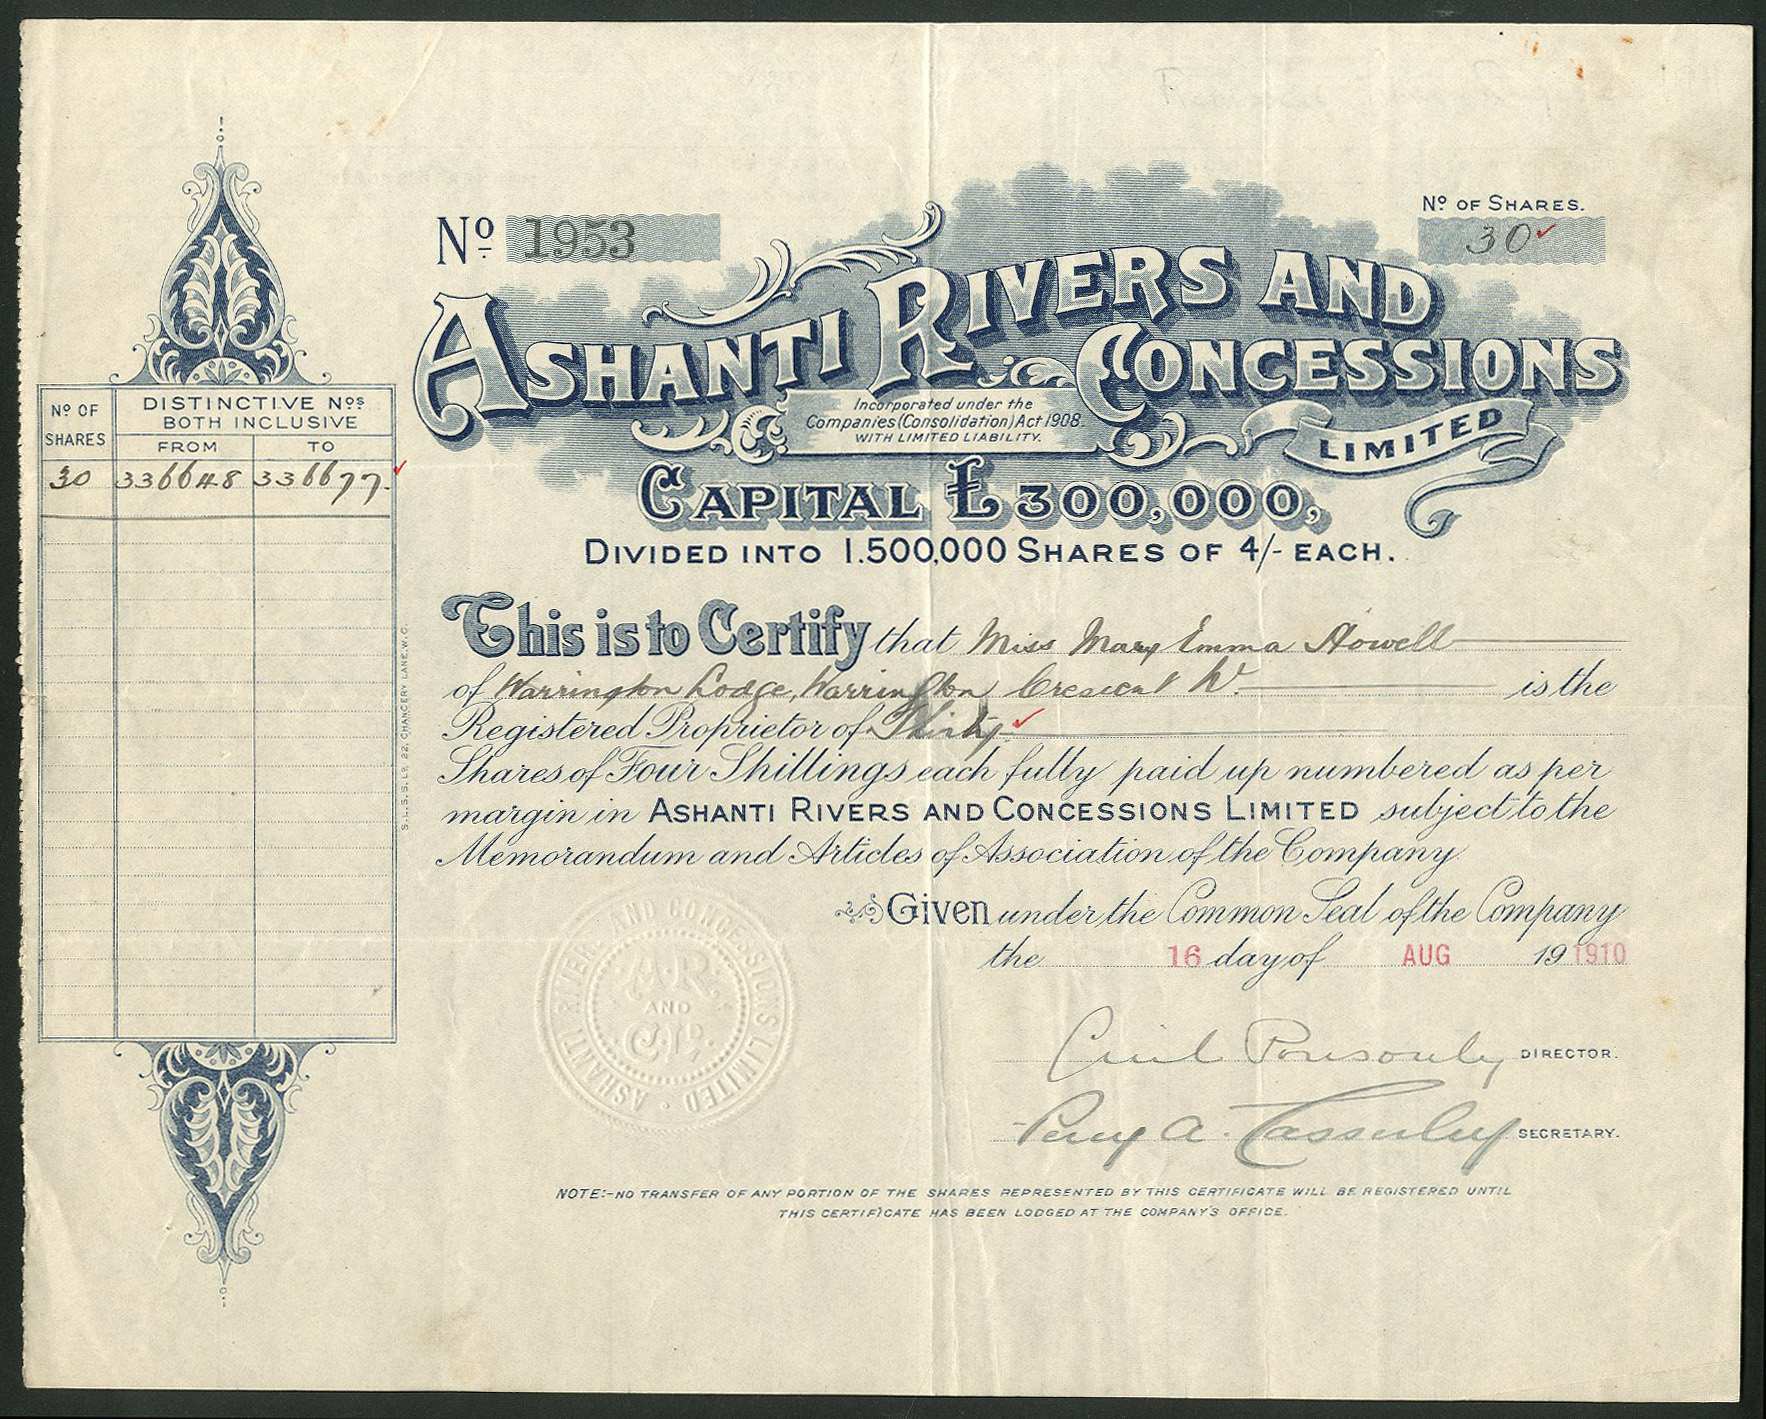 Nº 1953
Nº OF SHARES.
30
ASHANTI RIVERS AND
CONCESSIONS
LIMITED
Incorporated under the
Companies (Consolidation) Act 1908.
WITH LIMITED LIABILITY.
CAPITAL £300,000,
DIVIDED INTO 1.500,000 SHARES OF 4/- EACH.
Nº OF SHARES
DISTINCTIVE Nºs
BOTH INCLUSIVE
FROM TO
30 336648 336677.
S.L.S.S. Lᴰ. 22, CHANCERY LANE, W.C.
This is to Certify that Miss Mary Emma Howell
of Warrington Lodge, Warrington Crescent W. is the
Registered Proprietor of Thirty
Shares of Four Shillings each fully paid up numbered as per
margin in ASHANTI RIVERS AND CONCESSIONS LIMITED subject to the
Memorandum and Articles of Association of the Company.
Given under the Common Seal of the Company
the 16 day of AUG 19 1910
ASHANTI RIVERS AND CONCESSIONS LIMITED
A.R.
AND
C. Lᴰ.
Cecil Ponsonby DIRECTOR.
Percy A. Casserley SECRETARY.
NOTE:-NO TRANSFER OF ANY PORTION OF THE SHARES REPRESENTED BY THIS CERTIFICATE WILL BE REGISTERED UNTIL
THIS CERTIFICATE HAS BEEN LODGED AT THE COMPANY'S OFFICE.